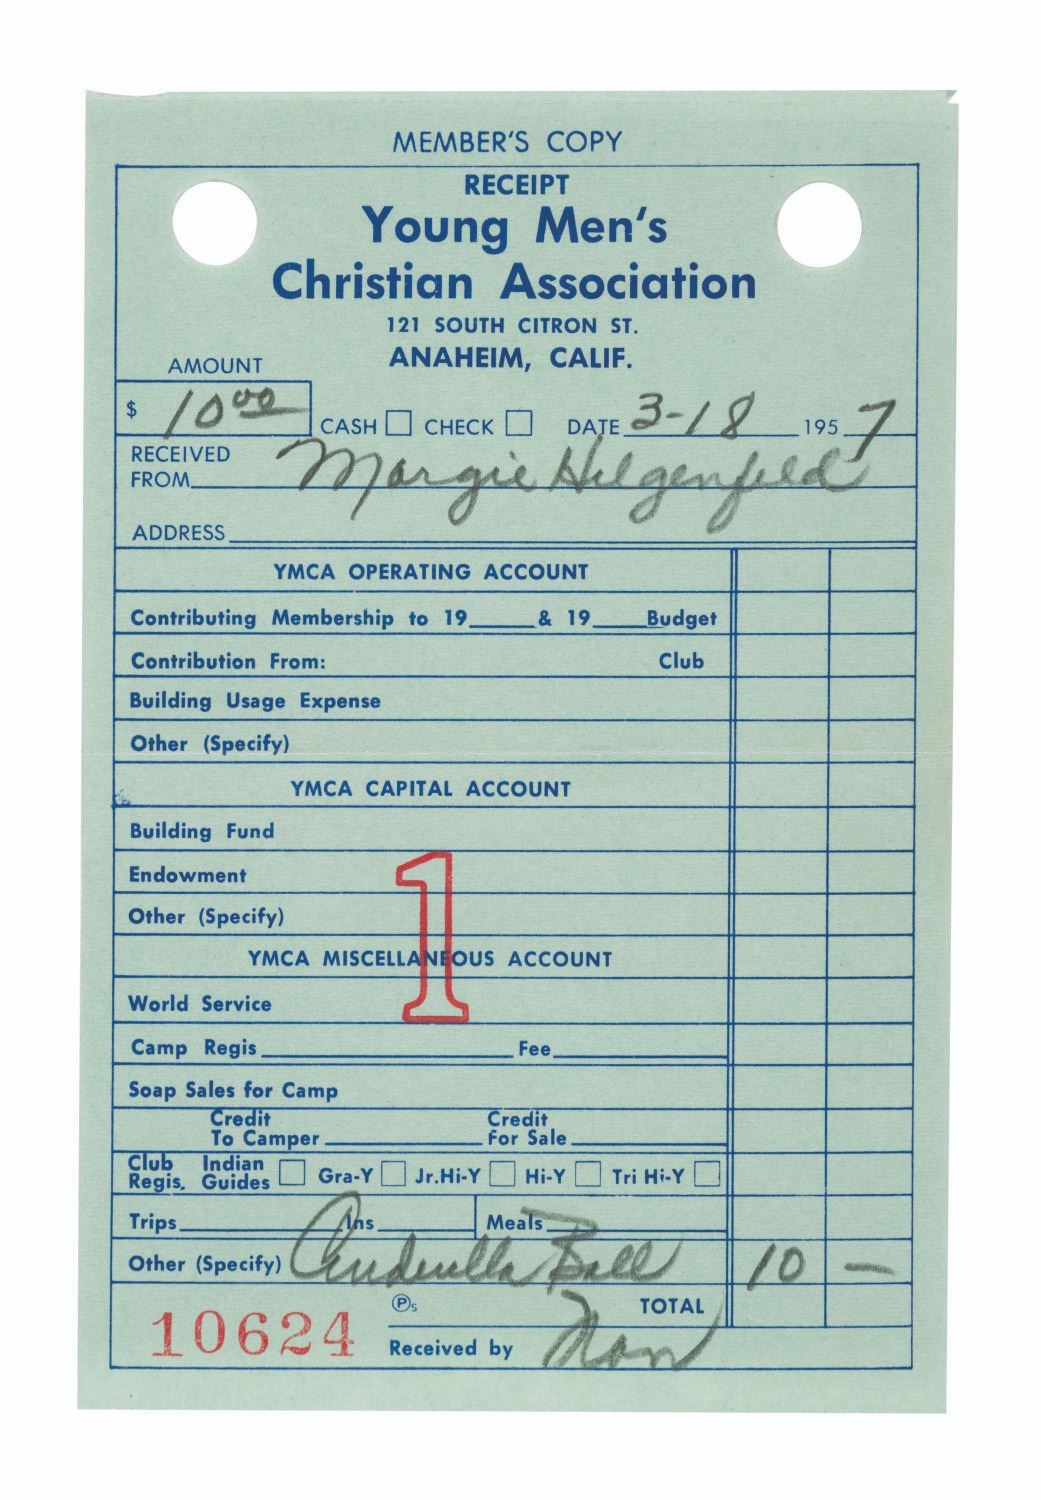 MEMBER'S COPY
RECEIPT
Young Men's
Christian Association
121 SOUTH CITRON ST.
ANAHEIM, CALIF.
AMOUNT
$ 10.00 CASH CHECK DATE 3-18 1957
RECEIVED
FROM Margie Hilgenfeld
ADDRESS
YMCA OPERATING ACCOUNT
Contributing Membership to 19 & 19 Budget
Contribution From: Club
Building Usage Expense
Other (Specify)
YMCA CAPITAL ACCOUNT
Building Fund
Endowment
Other (Specify)
1
YMCA MISCELLANEOUS ACCOUNT
World Service
Camp Regis Fee
Soap Sales for Camp
Credit Credit
To Camper For Sale
Club Indian
Regis. Guides Gra-Y Jr.Hi-Y Hi-Y Tri Hi-Y
Trips Ins Meals
Other (Specify) Cinderella Ball 10 —
Ps TOTAL
10624 Received by